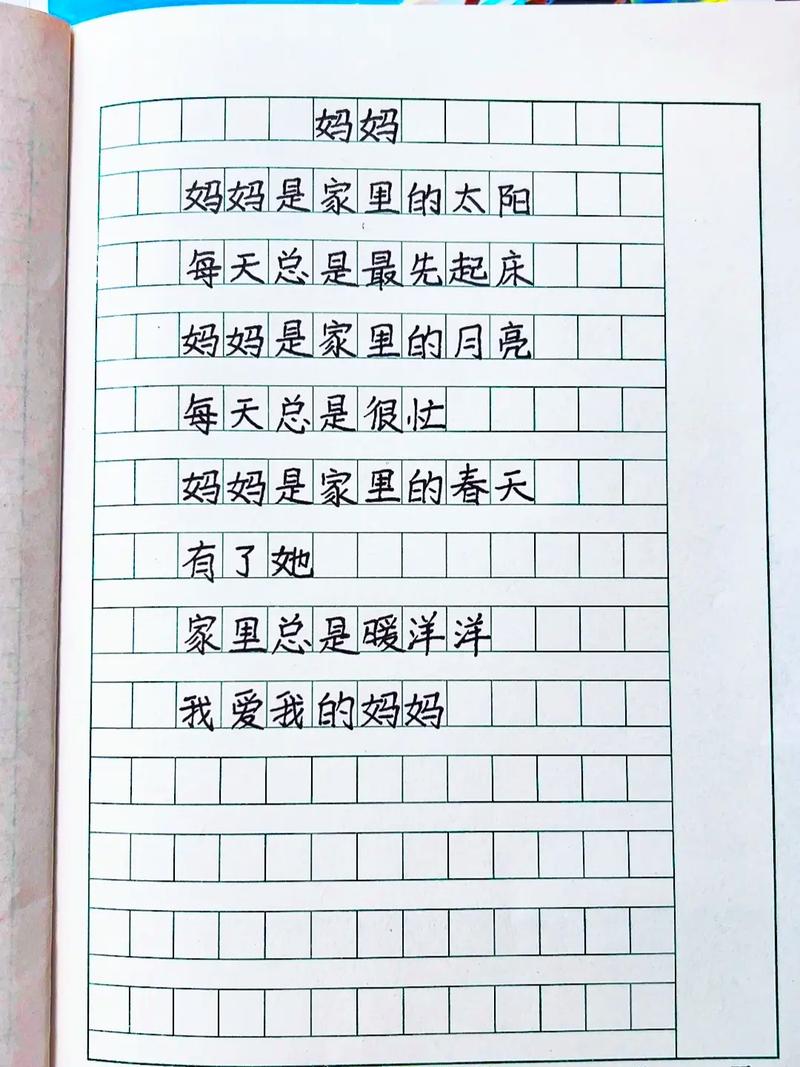 妈妈
妈妈是家里的太阳
每天总是最先起床
妈妈是家里的月亮
每天总是很忙
妈妈是家里的春天
有了她
家里总是暖洋洋
我爱我的妈妈